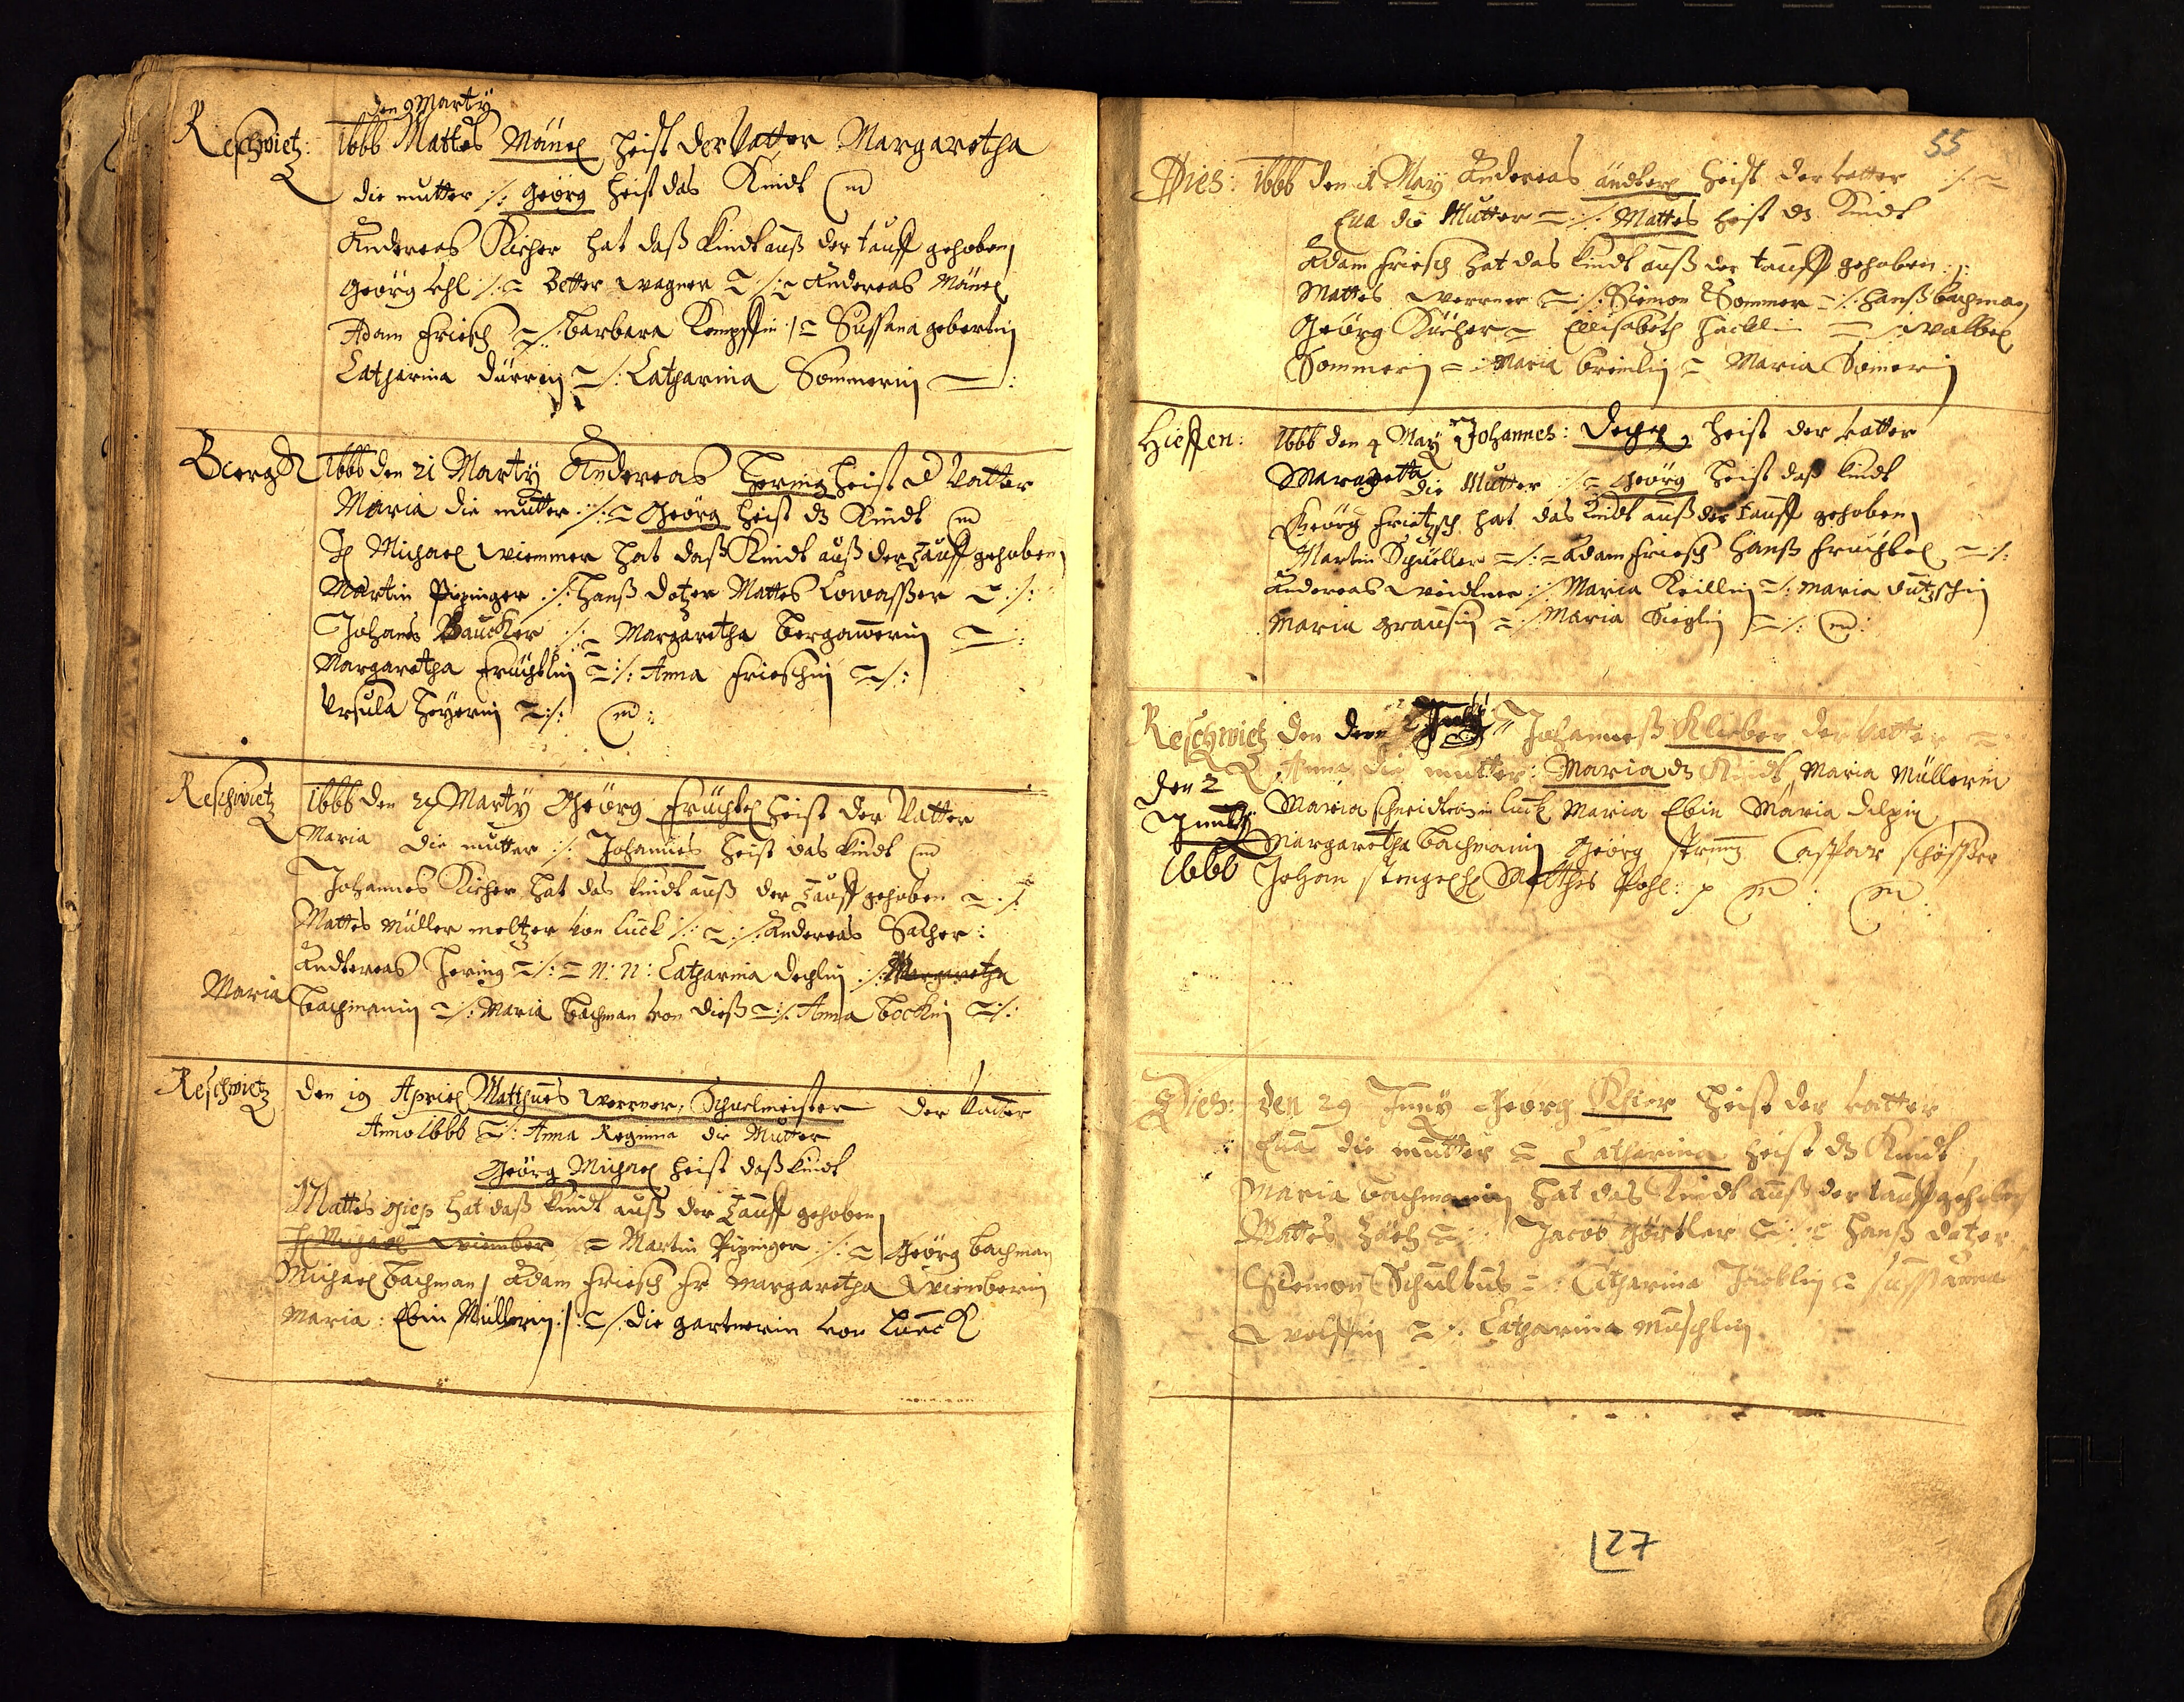 den 9 Marty
Reschwietz: 1666 Mattes Mänel heist der Vatter Margaretha
die mutter ⁒ Geörg heist das Kindt
Andereas Kicher hat daß kindt auß der tauff gehoben
Geörg ⁒ Better wagner ⁒ Andereas Mänel
Adam Friesch ⁒ Barbara Kempffin ⁒ Sussana gebertin
Catharina Dürrin ⁒ Catharina Sommerin
Bierg 1666 den 21 Marty Andereas Hering heist d Vatter
Maria die mutter ⁒ Geörg heist dz Kindt
H Michael Wiemmer hat daß Kindt auß der Tauff gehoben
Martin Pizinger ⁒ Hanß dotzer Mattes Lowasser ⁒
Johanes Baucker ⁒ Margaretha
Margaretha Früchtlin ⁒ Anna Frieschin ⁒
Ursula Heyerin ⁒
Reschwietz 1666 den 29 Marty Geörg Früchtel heist der Vatter
Maria die mutter ⁒ Johannes heist das kindt
Johannes Kicher hat das kindt auß der Tauff gehoben ⁒
Mattes Müller meltzer von Luck ⁒ Andereas Sacher:
Andereas Hering ⁒ N: N: Catharina dechlin ⁒ Margaretha
Maria Bachmanin ⁒ Maria Bachman von dieß ⁒ Anna Böckin ⁒
Reschwietz den 19 Apriel Matthues Werrner, Schuelmeister der Vatter
Anno 1666 ⁒ Anna Reginna die Mutter
Geörg Michael heist daß kindt
Mattes hat daß kindt auß der Tauff gehoben
H Michael Wiember Martin Pizinger ⁒ Geörg Bachman
Michael Bachman Adam Friesch Fr Margaretha Wiemberin
Maria: Ebin Müllerin ⁒ die gartnerin von Lueck
55
Dies: 1666 den 1 May Andereas heist der vatter ⁒
Eua die Mutter ⁒ Mattes heist dz Kindt
Adam Friesch hat das kindt auß der tauff gehoben ⁒
Mattes Werrner ⁒ Siemon Sommer ⁒ Hanß Bachman
Geörg Kücher Elisabeth Hacklin ⁒ Walbel
Sommerin Maria Maria Somerin
Hiessen: 1666 den 4 May Johannes: Dechel heist der vatter
Maragetta die Mutter ⁒ Geörg heist daß kindt
Geörg Frietzsch hat das kindt auß der Tauff gehoben
Martin Schüeller ⁒ Adam Friesch Hanß Früchtel ⁒
Andereas Weidtner ⁒ Maria Keillin ⁒ Maria
Maria Grausin ⁒ Maria Sieglin ⁒
Reschwietz den Johanneß Klieber der Vatter
Anna die mutter: Maria dz Kindt Maria Müllerin
den 2
Maria Luck Maria Ebin Maria
Juny
Margaretha Bachmanin Geörg Caspar
1666 Johan Matthes Pohl:
Dies: den 29 Juny Geörg Khier heist der vatter
Eua die mutter Catharina heist dz Kindt
Maria Bachmanin hat das kindt auß der tauff gehoben
Mattes Jacob Hanß doter
Siemon Schultus Catharina Sussanna
Wolffin ⁒ Catharina
127